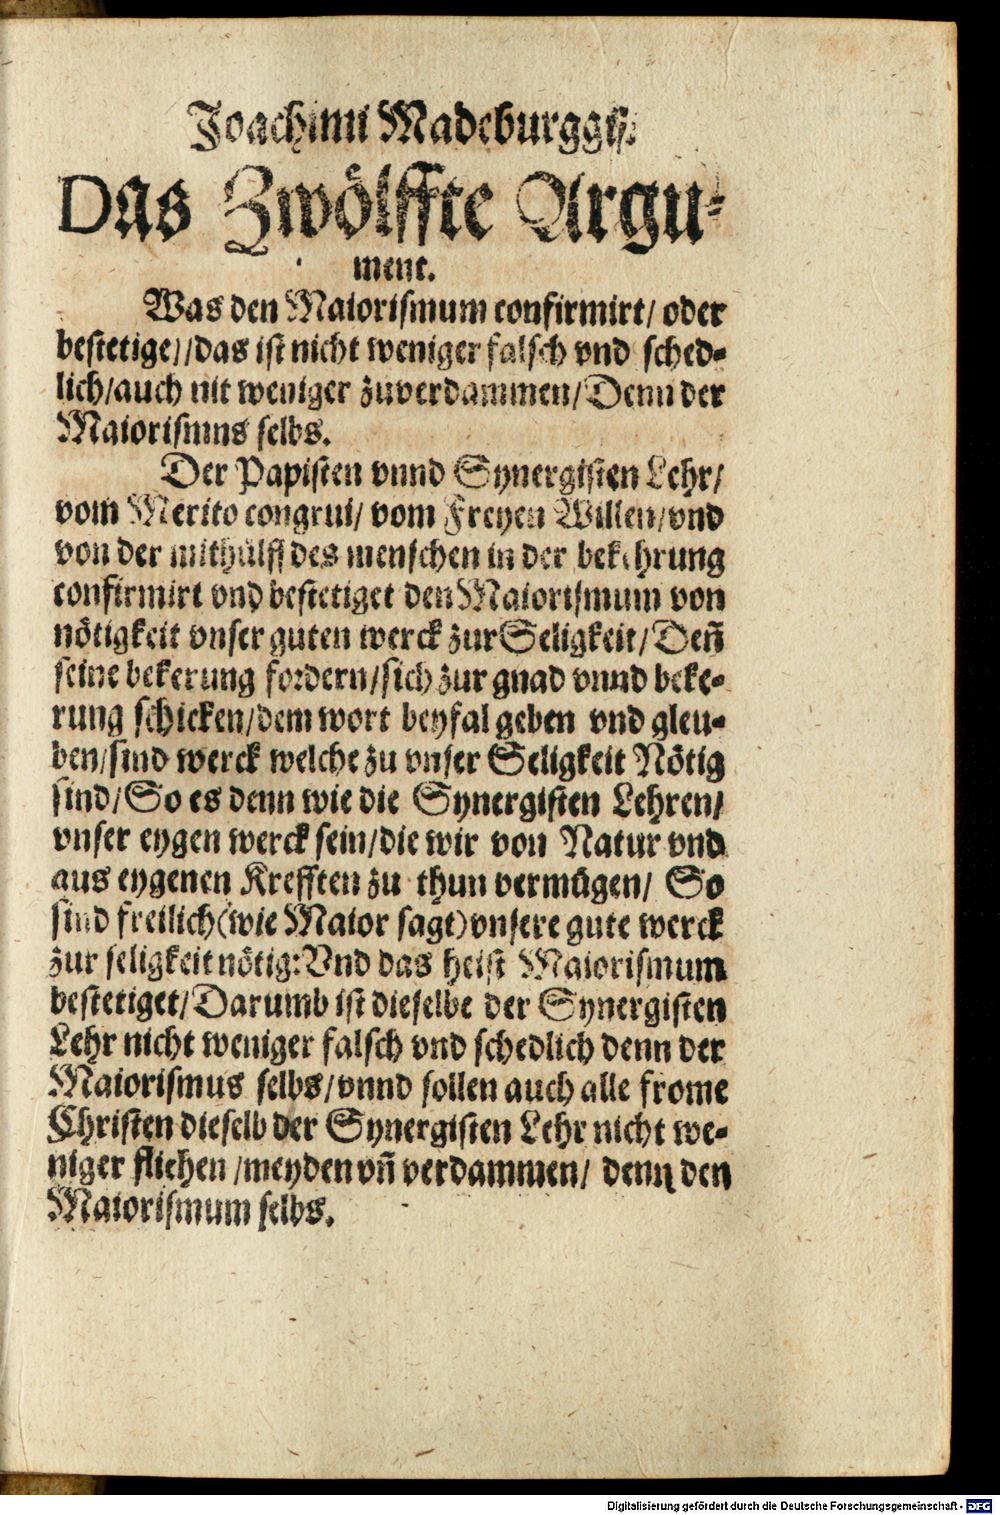 Joachimi Madeburggis:
Das Zwölffte Argu-
ment.
Was den Maiorismum confirmirt/ oder
bestetiget/das ist nicht weniger falsch vnd sched-
lich/auch nit weniger zuverdammen/Denn der
Maiorismus selbs.
Der Papisten vnnd Synergisten Lehr/
vom Merito congrui/ vom Freyen Willen/vnd
von der mithülff des menschen in der bekehrung
confirmirt vnd bestetiget den Maiorismum von
nötigkeit vnser guten werck zur Seligkeit/Deñ
seine bekerung fordern/sich zur gnad vnnd beke-
rung schicken/dem wort beyfal geben vnd gleu-
ben/sind werck welche zu vnser Seligkeit Nötig
sind/So es denn wie die Synergisten Lehren/
vnser eygen werck sein/die wir von Natur vnd
aus eygenen Krefften zu thun vermügen/ So
sind freilich(wie Maior sagt)vnsere gute werck
zur seligkeit nötig:Vnd das heist Maiorismum
bestetiget/Darumb ist dieselbe der Synergisten
Lehr nicht weniger falsch vnd schedlich denn der
Maiorismus selbs/vnnd sollen auch alle frome
Christen dieselb der Synergisten Lehr nicht we-
niger fliehen/meyden vñ verdammen/ denn den
Maiorismum selbs.
Digitalisierung gefördert durch die Deutsche Forschungsgemeinschaft - DFG